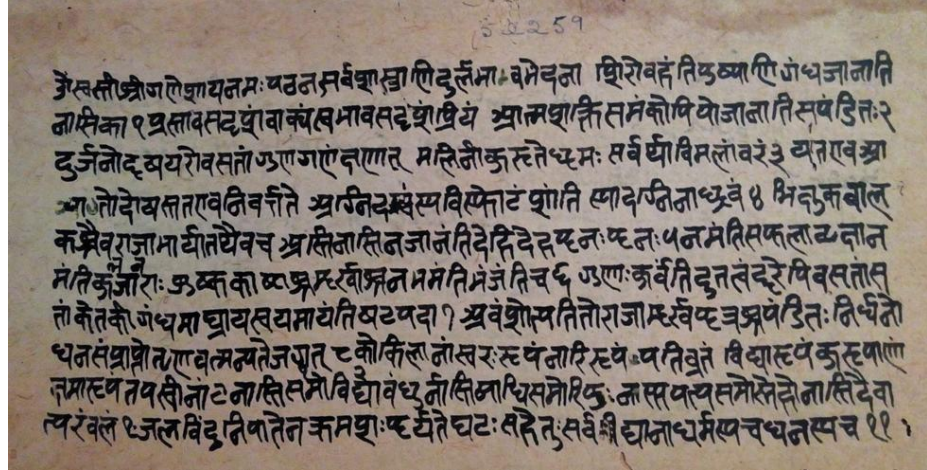 259
ॐस्वस्तीश्रीगणेशायनमः पठनसर्वशास्त्राणिदुर्लभा वमेदना शिरोवहंतिपुष्पाणिगंधजानाति
नासिका १ प्रस्तावसदृशंवाक्यंस्वभावसदृशंप्रियं आत्मशक्तिसमंकोपियोजानातिसपंडितः २
दुर्जनोदूषयत्येवसतांगुणगणंक्षणात् मलिनीकुरुतेधूमः सर्वथाविमलांवरं ३ यतएवआ
तोदोषस्ततएवनिवर्त्तते अग्निदग्धस्यविस्फोटंशांति स्यादग्निनाध्रुवं ४ भिक्षुकवाल
कश्चैवराजाभार्यातथैवच अस्तिनास्तिनजानंतिदेहिदेहपुनःपुनः ५ नमंतिसफलावृक्षान
मंतिकुंजराः शुष्ककाष्टश्चमूर्खाश्चनभमंतिभंजंतिच ६ गुणाःकुर्वंतिदूतत्वंदूरेपिवसतांस
तांकेतकीगंधमाघ्रायस्वयमायंतिषटपदा ७ अवंशोत्पतितोराजामूर्खपुत्रश्चपंडितः निर्धनो
धनसंप्राप्तोतृणवन्मन्यतेजगत् ८ कोकिलानांस्वरःरूपंनारिरूपंपतिव्रतं विद्यारूपंकुरूपाणां
क्षमारूपतपस्वीनां ९ नास्तिसमोविद्यावंधुर्नास्तिव्याधिसमोरिपुः नास्तपत्यसमोस्नेहोनास्तिदैवा
त्परंवलं १ जलविंदुनिपातेनक्रमशःपूर्यतेघटः सहेतुःसर्वविद्यानांधर्मस्यचधनस्यच ११